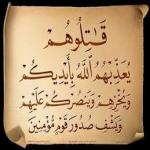 قَٰتِلُوهُمْ
يُعَذِّبْهُمُ ٱللَّهُ بِأَيْدِيكُمْ
وَيُخْزِهِمْ وَيَنصُرْكُمْ عَلَيْهِمْ
وَيَشْفِ صُدُورَ قَوْمٍ مُّؤْمِنِينَ